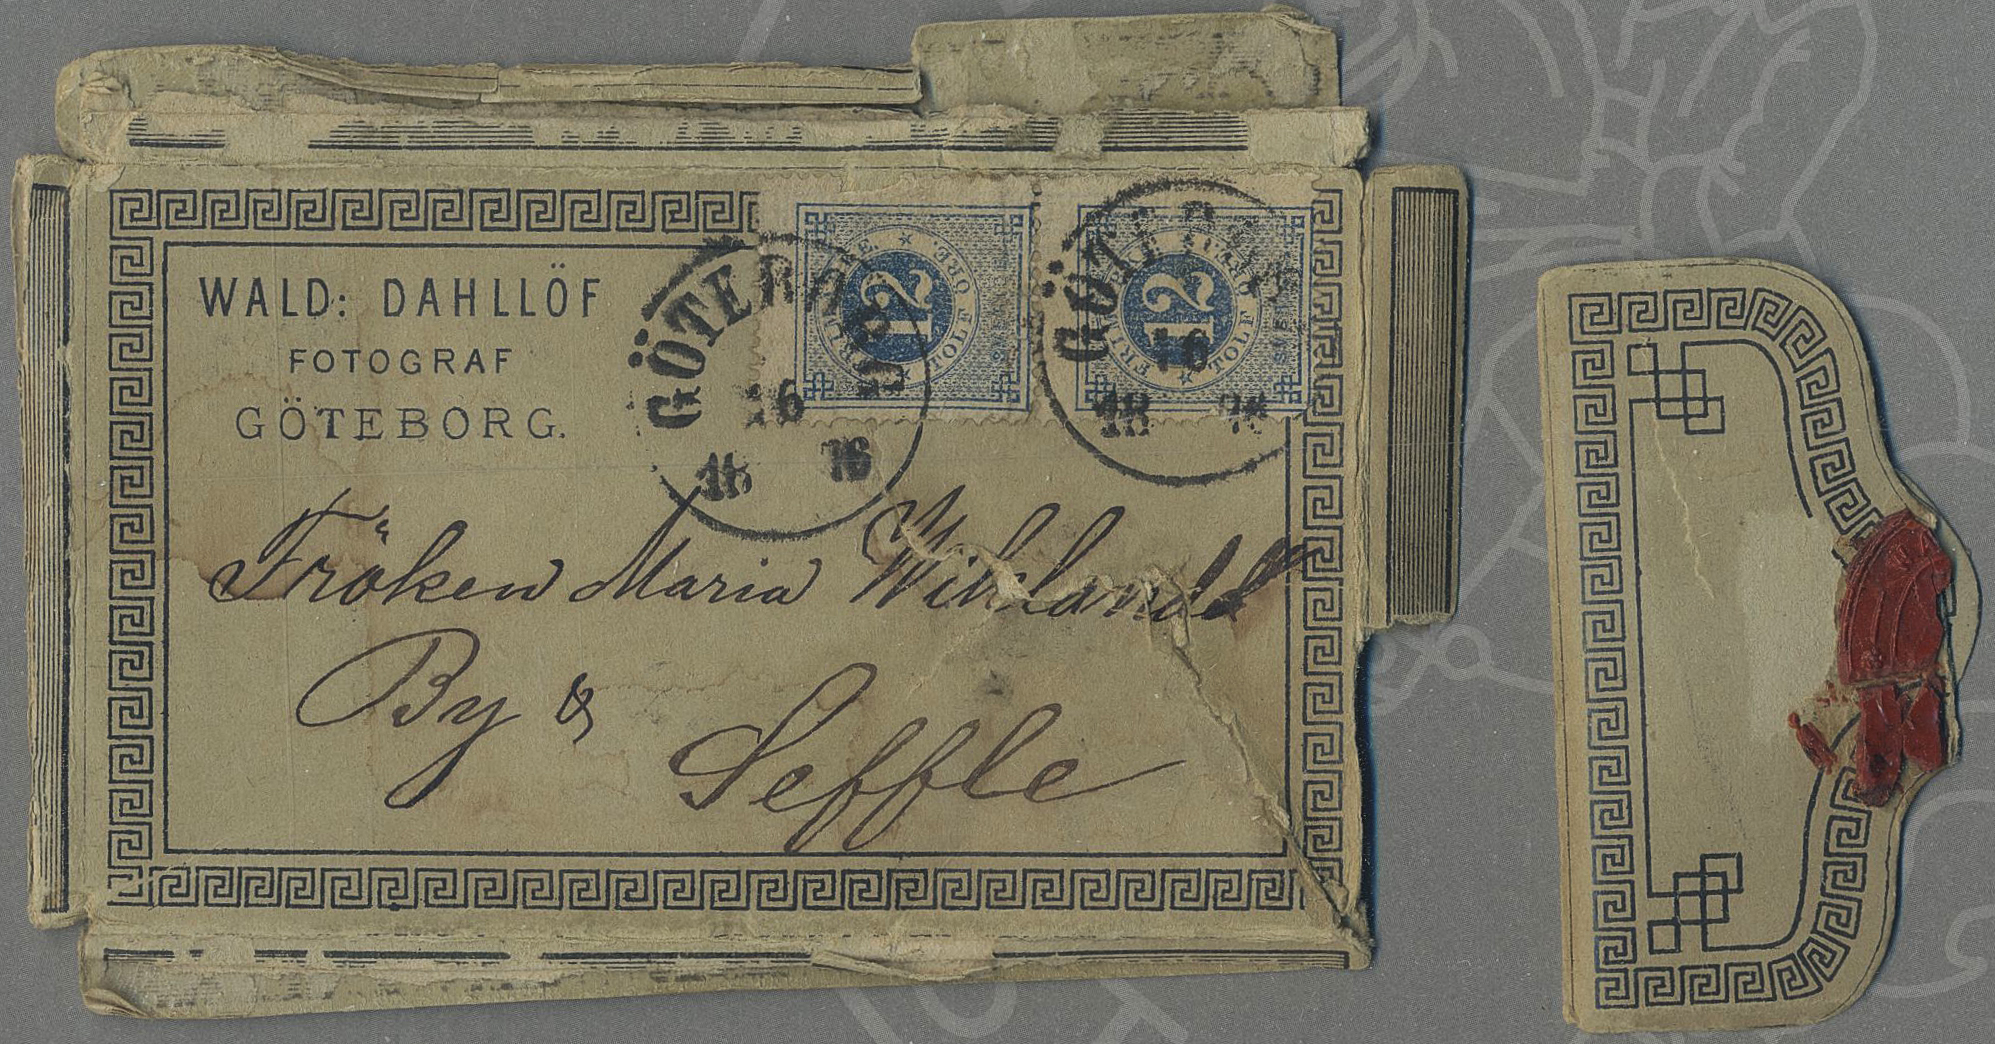 WALD: DAHLLÖF
FOTOGRAF
GÖTEBORG.
GÖTEBORG
16
18 76
12
FRIMÄRKE. TOLF ÖRE.
GÖTEBORG
16
18
12
FRIMÄRKE TOLF ÖRE.
Fröken Maria
By &
Seffle